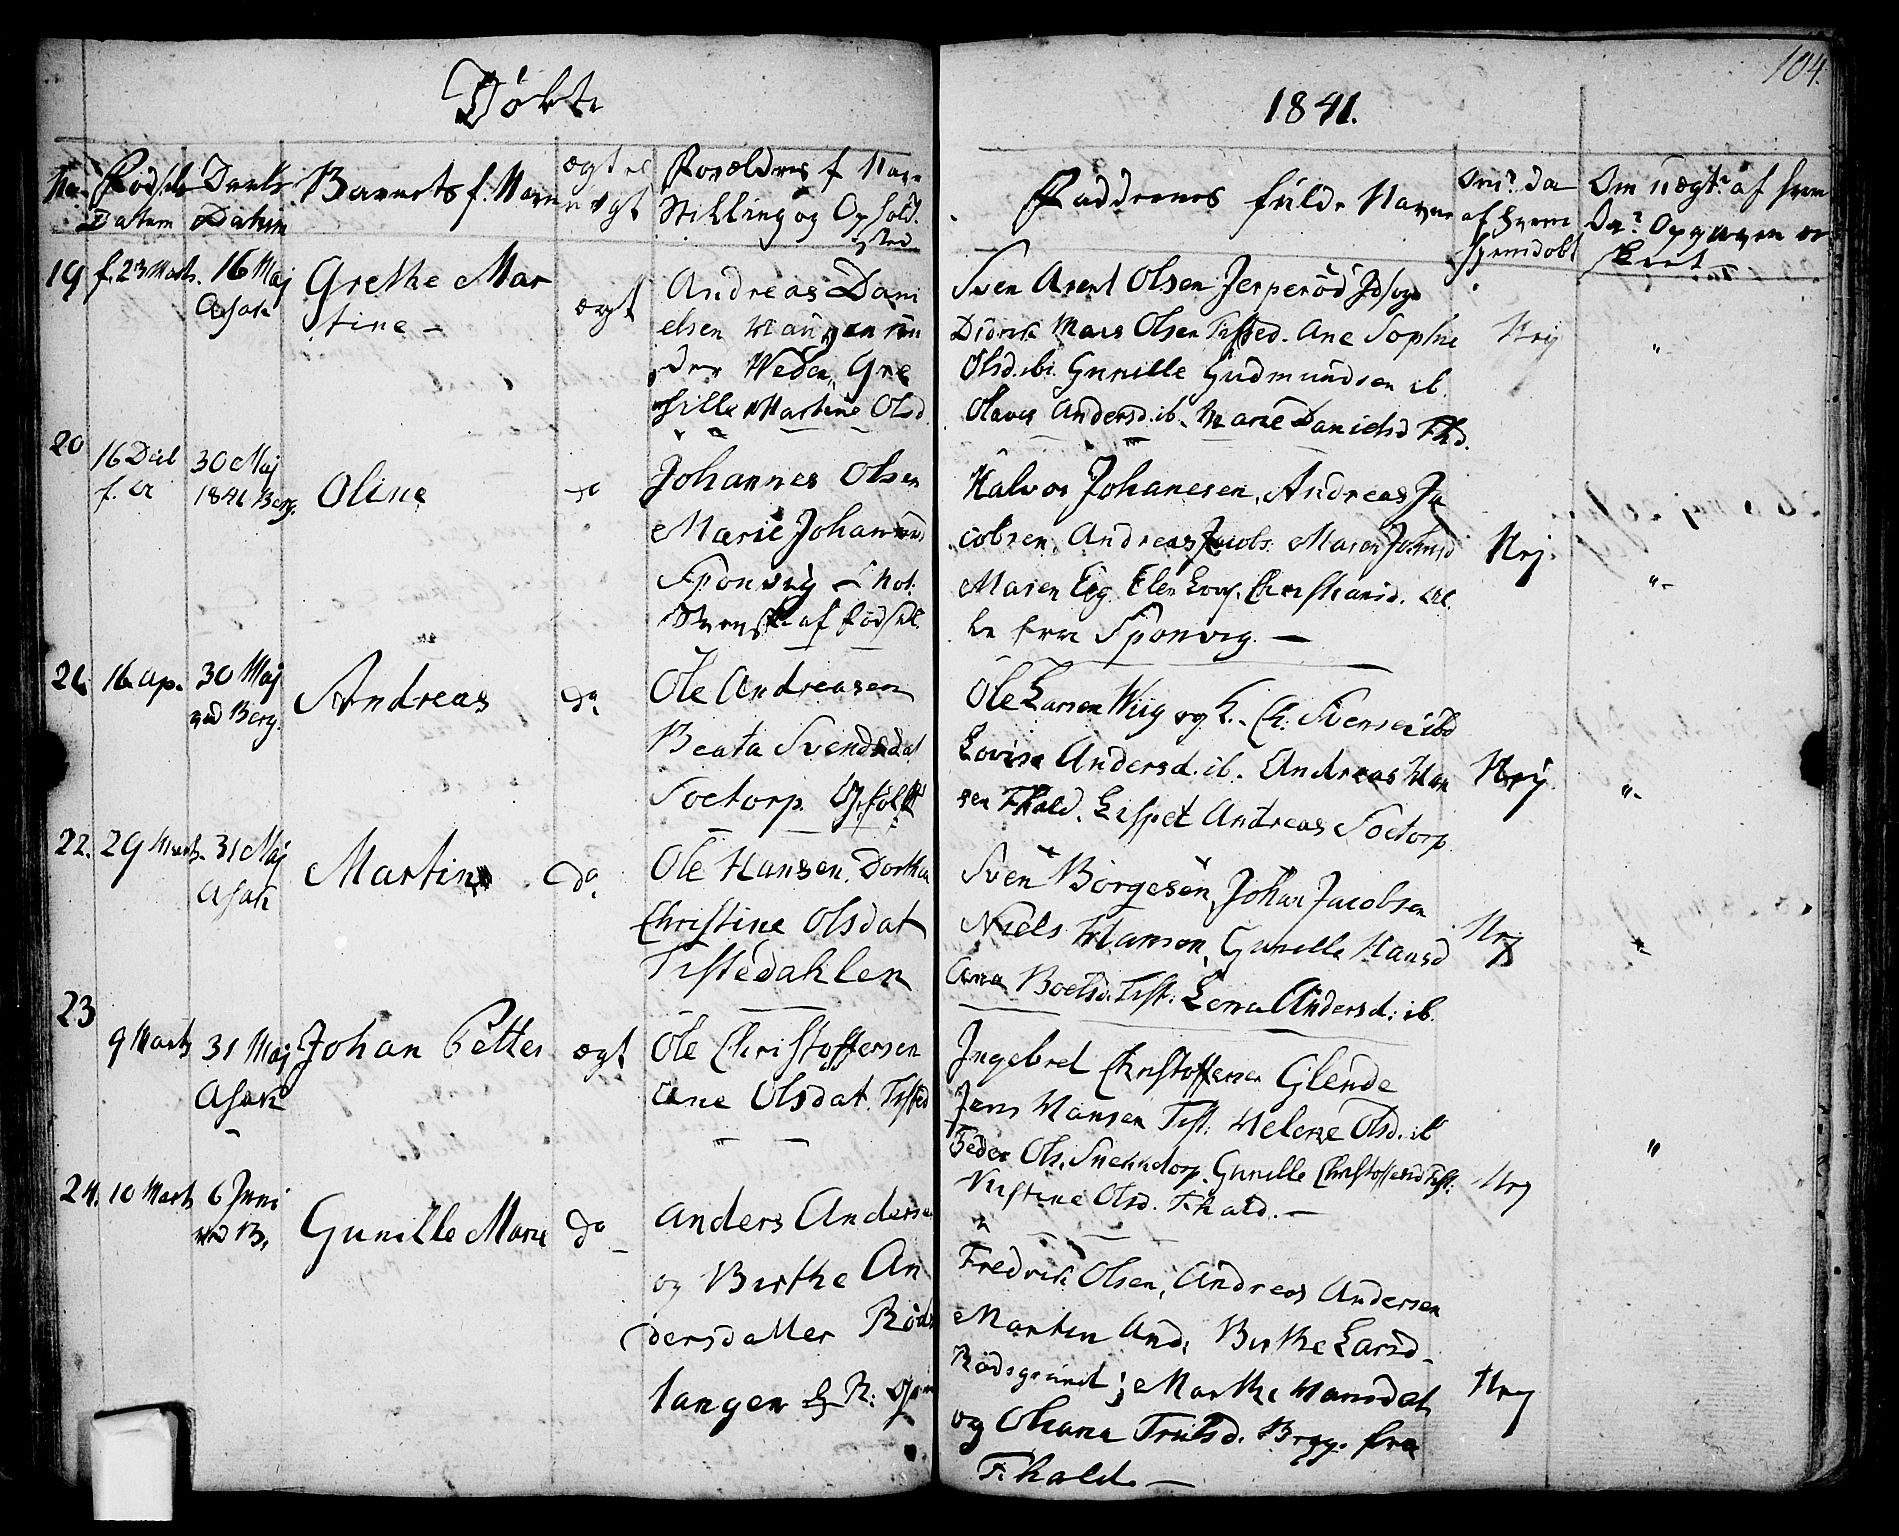 Døbte
1841.
104.
No.
Fødsels Datum
Daabs Datum
Barnets f. Navn
ægte
uægt
Forældres f Navn
Stilling og Ophold
sted
Faddrenes fulde Navne
Om? Da
af hvem
hjemdøbt
Om uægt af hvem
Da? Opgaven er
skeet
19 f. 23 Marts. 16 Maj
Asak
Grethe Mar
tine -
ægt
Andreas Dani
elsen Haugen un
der Weden, Gre
Martine Olsd
Sven Arent Olsen Jesperød
Didrik Mars Olsen Tisted. Ane Sophie
Olsd. ib. Gunille Gudmundsen ib
Olava Andersd. ib. Marie Danielsd Fhd.
Nej
"
20
16 Decbr
f. A
30 Maj
1841 Berg.
Oline
do
Johannes Olsen
Marie Johansd
Sponvig
Svensk af Fødsel.
Halvor Johanesen, Andreas Ja
cobsen, Andreas Jacobs. Maren Johnsd
Maren Eig. Elen Lovs. Christansd. al
le fra Sponvig. -
Nej.
"
21. 16 Ap.
30 Maj
ved Berg.
Andreas
do
Ole Andreasen
Beata Svendsdat
Soetorp. Opfølt
Ole Larsen Wiig og L. Ch. Svensen ibd
Lovise Andersd. ib. Andreas Han
sen Fhald. Lispet Andreas Soetorp
Nej
"
22. 29 Marts. 31 Maj
Asak
Martin
do
Ole Hansen. Dorthea
Christine Olsdat
Tistedahlen
Sven Börgesen, Johan Jacobsen
Niels Hansen, Gunille Hansd
Ana Boelsd. Tist: Lena Andersd: ib.
Nej
"
23
9 Marts 31 Maj
Asak
Johan Petter
ægt
Ole Christoffersen
Ane Olsdat. Tisted
Ingebret Christoffersen Glende
Jens Hansen Tist: Helene Olsd. ib
Peder Ols. Gunille Christoffersd Tist:
Kistine Olsd. Fhald. -
Nej
"
24. 10 Marts 6 Juni
ved B.
Gunille Marie
do
Anders Anderse
og Birthe An
dersdatter Röds
tangen
Fredrik Olsen, Andreas Andersen
Martin And: Birthe Larsd
Rödsgrund; Marthe Hansdat
og Ohana Trulsd. Brgg. fra
Fhald. -
Nej